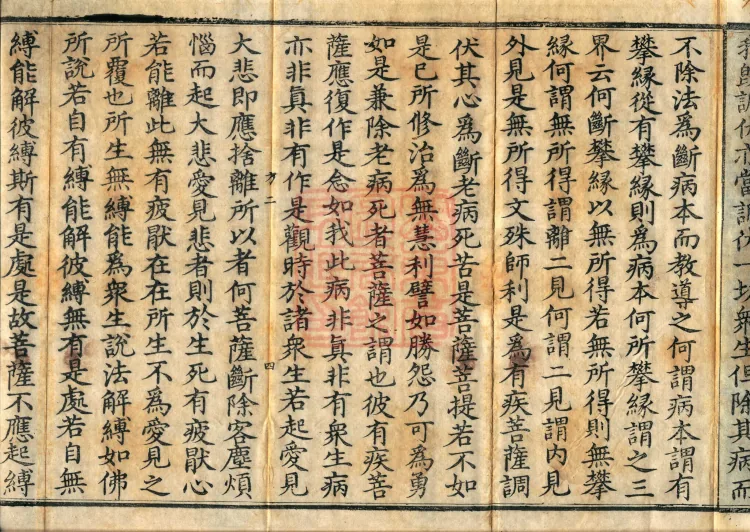 調伏亦當調伏一切衆生但除其病而
不除法爲斷病本而教導之何謂病本謂有
攀縁從有攀縁則爲病本何所攀縁謂之三
界云何斷攀縁以無所得若無所得則無攀
縁何謂無所得謂離二見何謂二見謂内見
外見是無所得文殊師利是爲有疾菩薩調
伏其心爲斷老病死苦是菩薩菩提若不如
是已所修治爲無慧利譬如勝怨乃可爲勇
如是兼除老病死者菩薩之謂也彼有疾菩
薩應復作是念如我此病非眞非有衆生病
亦非眞非有作是觀時於諸衆生若起愛見
方二 四
大悲即應捨離所以者何菩薩斷除客塵煩
惱而起大悲愛見悲者則於生死有疲猒心
若能離此無有疲猒在在所生不爲愛見之
所覆也所生無縛能爲衆生說法解縛如佛
所說若自有縛能解彼縛無有是處若自無
縛能解彼縛斯有是處是故菩薩不應起縛